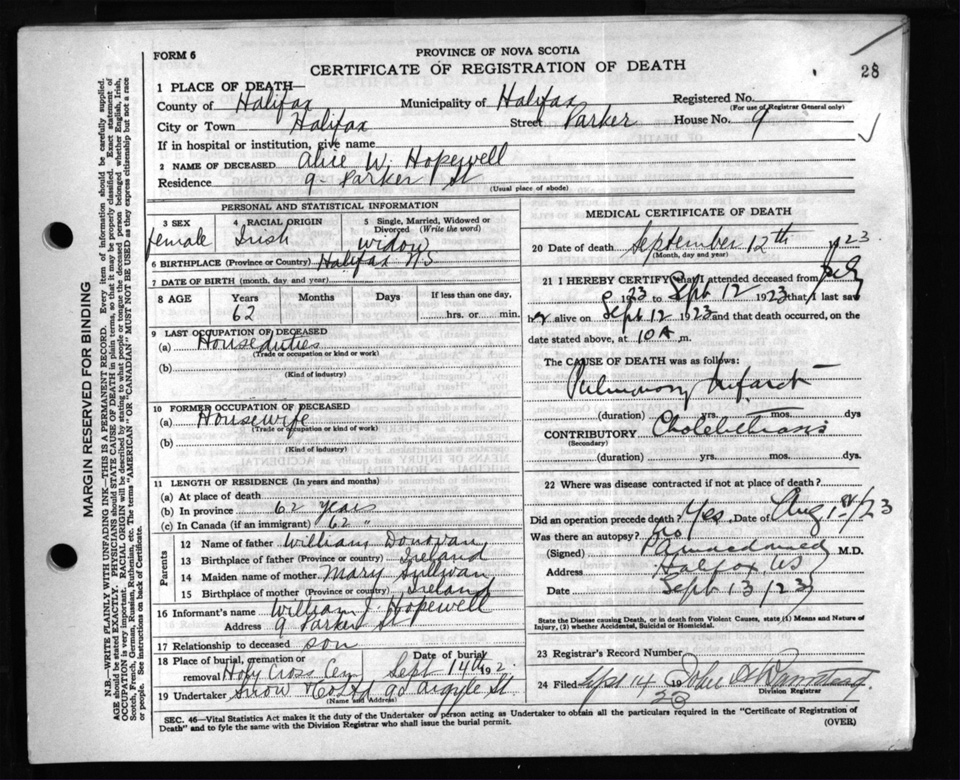 FORM 6
PROVINCE OF NOVA SCOTIA
CERTIFICATE OF REGISTRATION OF DEATH
28
1 PLACE OF DEATH—
County of Halifax Municipality of Halifax Registered No.
(For use of Registrar General only)
City or Town Halifax Street Parker House No. 9
If in hospital or institution, give name
2 NAME OF DECEASED Alice W. Hopewell
Residence 9 Parker St
(Usual place of abode)
PERSONAL AND STATISTICAL INFORMATION
3 SEX 4 RACIAL ORIGIN 5 Single, Married, Widowed or Divorced (Write the word)
female Irish widow
6 BIRTHPLACE (Province or Country) Halifax N.S
7 DATE OF BIRTH (month, day and year)
8 AGE Years Months Days If less than one day,
62 hrs. or min.
9 LAST OCCUPATION OF DECEASED
(a) House duties
(Trade or occupation or kind or work)
(b)
(Kind of industry)
10 FORMER OCCUPATION OF DECEASED
(a) Housewife
(Trade or occupation or kind or work)
(b)
(Kind of industry)
11 LENGTH OF RESIDENCE (In years and months)
(a) At place of death
(b) In province 62 years
(c) In Canada (if an immigrant) 62 "
Parents
12 Name of father William Donovan
13 Birthplace of father (Province or country) Ireland
14 Maiden name of mother Mary Sullivan
15 Birthplace of mother (Province or country) Ireland
16 Informant's name William J. Hopewell
Address 9 Parker St
17 Relationship to deceased son
18 Place of burial, cremation or removal Holy Cross Cem Date of burial Sept 14th 192
19 Undertaker Snow & Co Ltd 90 Argyle St.
(Name and Address)
MEDICAL CERTIFICATE OF DEATH
20 Date of death September 12th 1923
(Month, day and year)
21 I HEREBY CERTIFY that I attended deceased from
1923 to Sept 12 1923 that I last saw
her alive on Sept 12 1923 and that death occurred, on the
date stated above, at 10 A.m.
The CAUSE OF DEATH was as follows:
Pulmonary Infarct
(duration) yrs. mos. dys
CONTRIBUTORY
(Secondary)
(duration) yrs. mos. dys.
22 Where was disease contracted if not at place of death?
Did an operation precede death? Yes Date of Aug /23
Was there an autopsy? No
(Signed) M.D.
Address Halifax, NS
Date Sept 13/23
State the Disease causing Death, or in death from Violent Causes, state (1) Means and Nature of
Injury, (2) whether Accidental, Suicidal or Homicidal.
23 Registrar's Record Number
24 Filed Sept 14 1923 John
Division Registrar
SEC. 46—Vital Statistics Act makes it the duty of the Undertaker or person acting as Undertaker to obtain all the particulars required in the "Certificate of Registration of
Death" and to fyle the same with the Division Registrar who shall issue the burial permit.
(OVER)
MARGIN RESERVED FOR BINDING
N.B—WRITE PLAINLY WITH UNFADING INK—THIS IS A PERMANENT RECORD. Every item of information should be carefully supplied.
AGE should be stated EXACTLY. PHYSICIANS should STATE CAUSE OF DEATH in plain terms, so that it may be properly classified. Exact statement of
OCCUPATION is very important. RACIAL ORIGIN will be described by stating to what people or tongue the deceased person belonged whether English, Irish,
Scotch, French, German, Russian, Ruthenian, etc. The terms "AMERICAN" or "CANADIAN" MUST NOT BE USED as they express citizenship but not a race
or people. See instructions on back of Certificate.